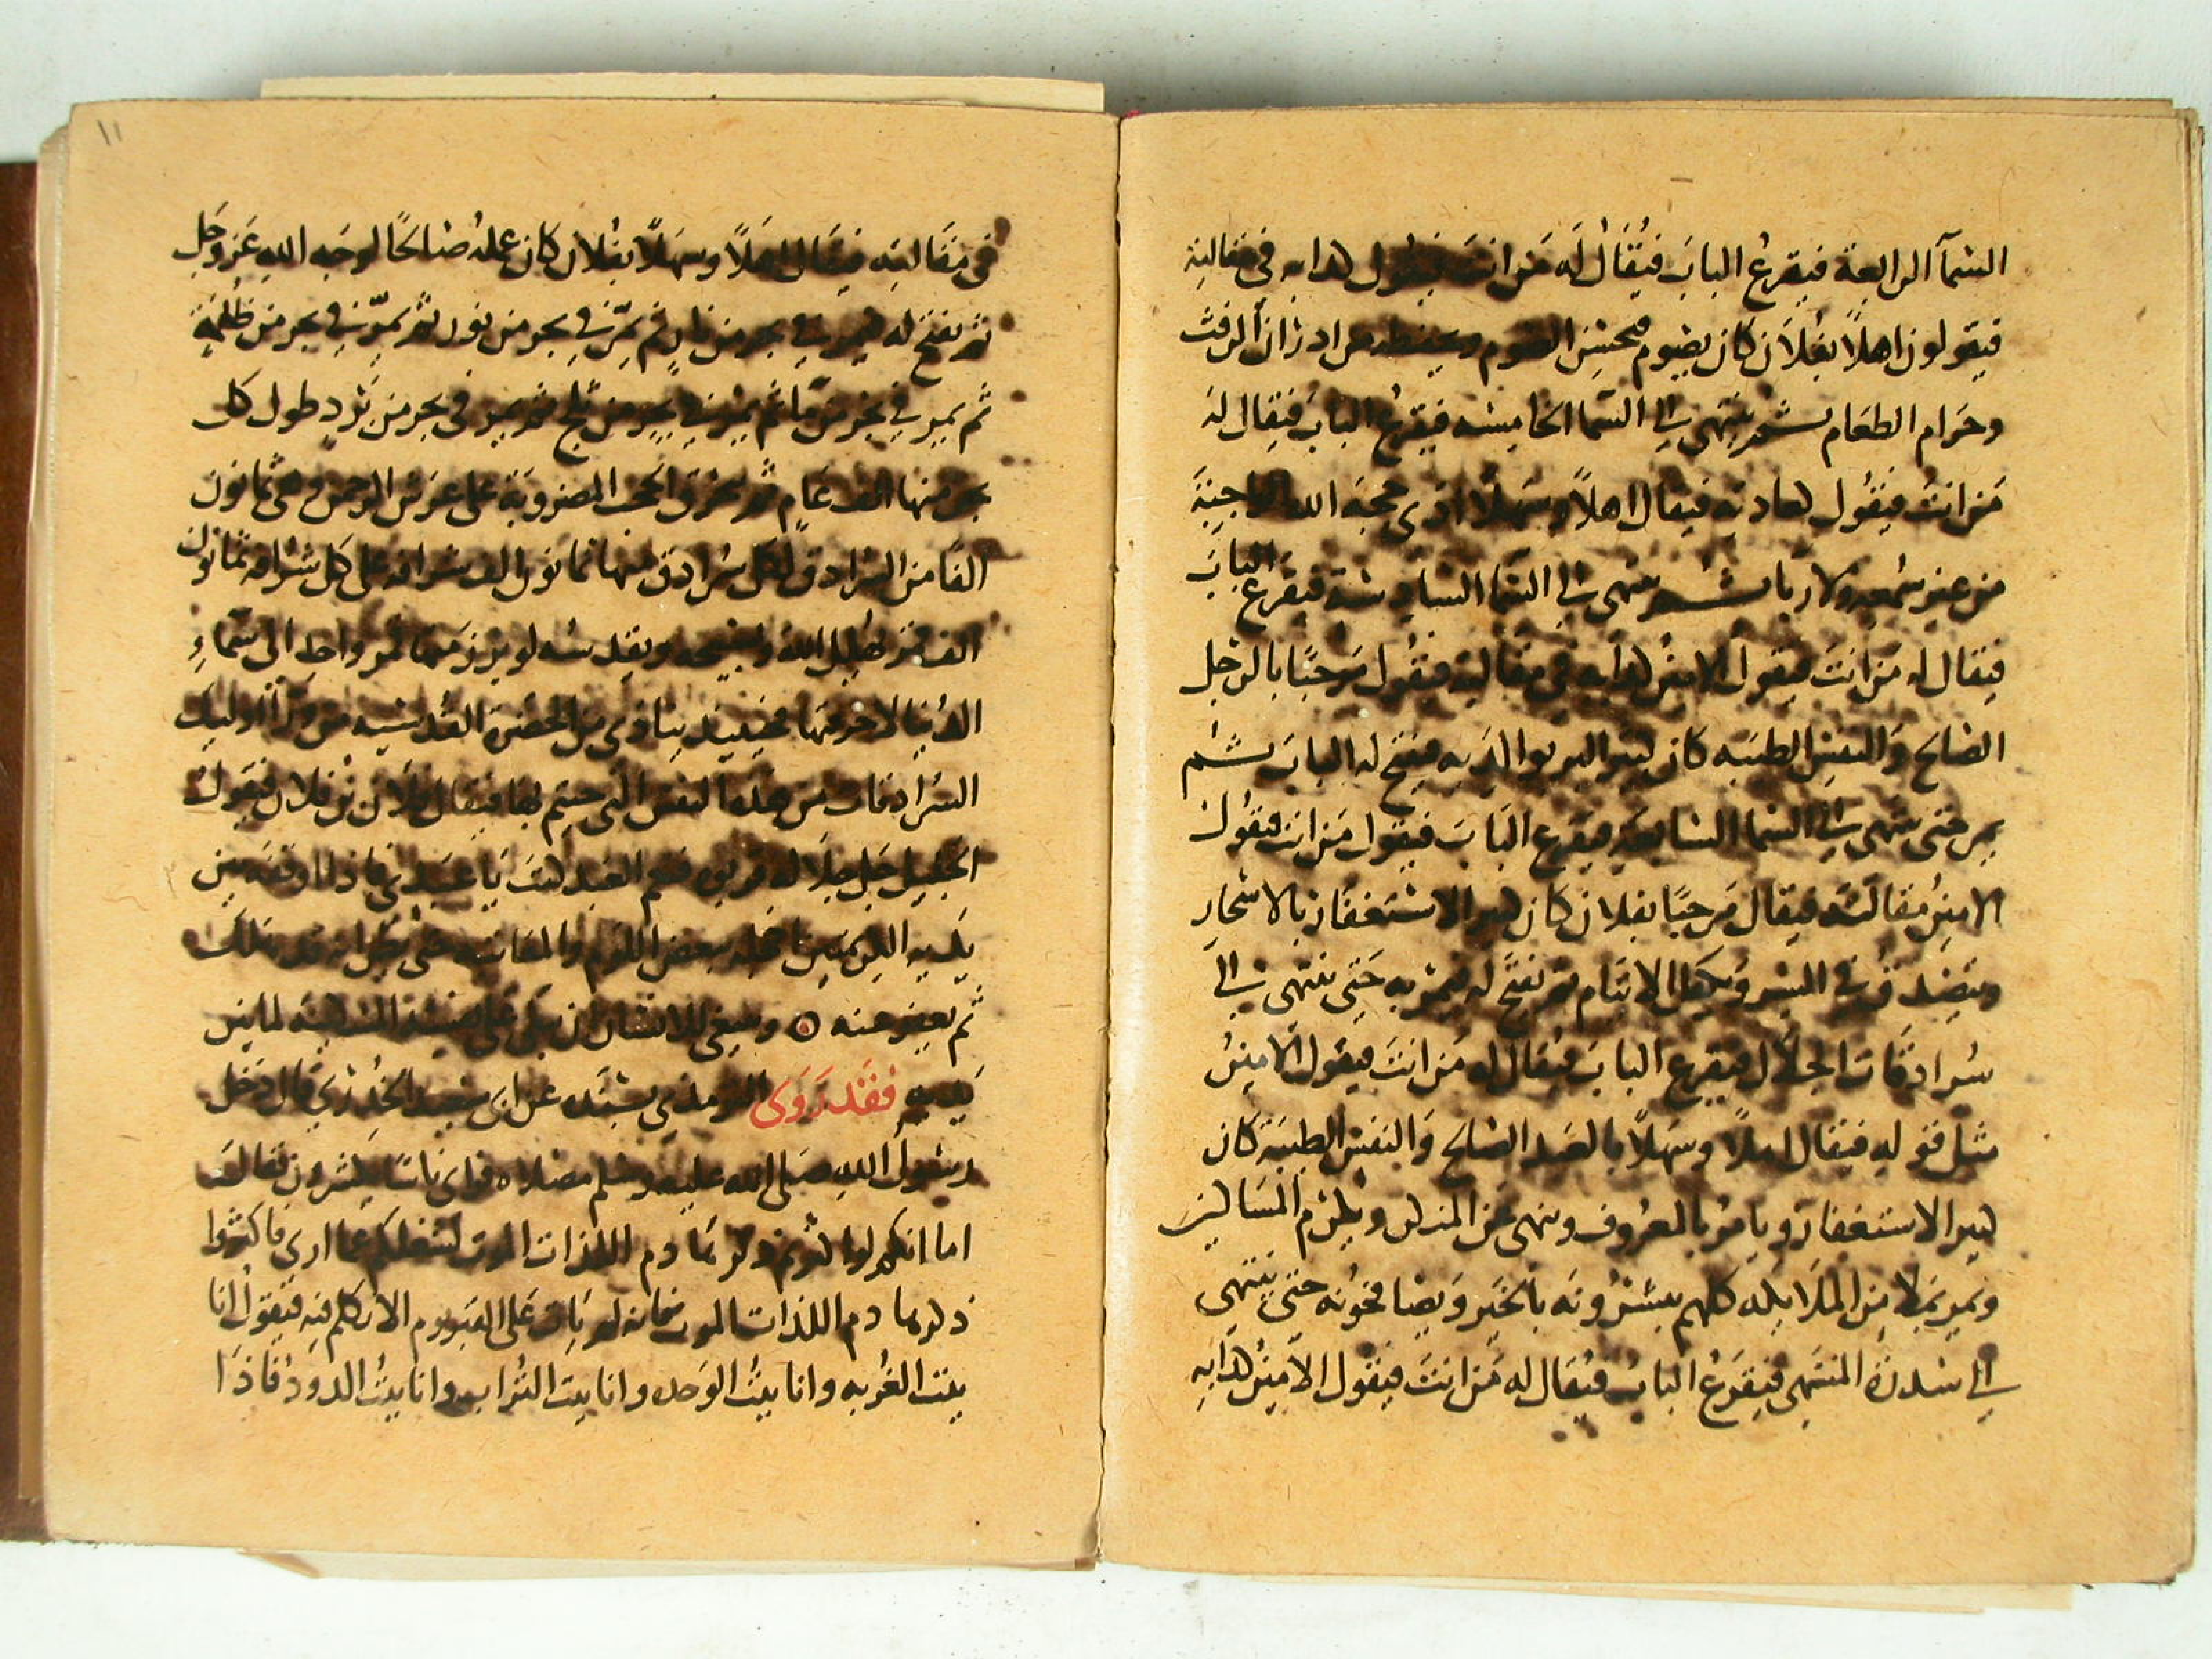 السمآ الرابعة فيقرع الباب فيُقال له من انت فيقول كدابه في مقالته
فيقولون اهلاً بفلان كان يصوم فيحسن الصوم ويحفظه من ادران الرفث
وحرام الطعام ثم ينتهي الى السما الخامسه فيقرع الباب فيقال له
من انت فيقول كعادته فيقال اهلاً وسهلاً ادى حجة الله الواجبة
من غير سمعه ولا ريا ثم ينتهي الى السما السادسة فيقرع الباب
فيقال له من انت فيقول الامين كدابه في مقالته فيقول مرحبًا بالرجل
الصالح والنفس الطيبه كان كثير البر بوالديه فيفتح له الباب ثم
يمر حتى ينتهي الى السما السابعه فيقرع الباب فيقول من انت فيقول
الامين مقالته فيقال مرحبًا بفلان كان كثير الاستغفار بالاسحار
ويتصدق في السر ويكفل الايتام ثم يفتح له فيمر به حتى ينتهي الى
سُرادقات الجلال فيقرع الباب فيقال له من انت فيقول الامين
مثل قوله فيقال اهلاً وسهلاً بالعبد الصالح والنفس الطيبة كان
كثير الاستغفار ويامر بالمعروف وينهى عن المنكر ويكرم المساكين
ويمر بملا من الملايكه كلهم يبشرونه بالخير ويصافحونه حتى ينتهي
الى سدرة المنتهى فيقرع الباب فيقال له من انت فيقول الامين كدابه
في مقالته فيقال اهلاً وسهلاً بفلان كان عمله صالحًا لوجه الله عز وجل
ثم يفتح له فيمر في بحر من نار ثم يمر في بحر من نور ثم يمر في بحر من ظلمة
ثم يمر في بحر من ما ثم يمر في بحر من ثلج ثم يمر في بحر من برد طول كل
بحر منها الف عام ثم يخرق الحجب المضروبة على عرش الرحمن وهي ثمانون
الفا من السرادق لكل سرادق منها ثمانون الف شرافه على كل شرافه ثمانون
الف قمر يهلل الله ويسبحه ويقدسه لو برز منها قمر واحد الى سماء
الدنيا لاحرقها فحينيذ ينادى من الحضرة القدسيه من ورآ اوليك
السرادقات من هذه النفس التي جيتم بها فيقال فلان بن فلان فيقول
الجليل جل جلاله قربوه فنعم العبد كنت يا عبدي فاذا اوقفه بين
يديه الكريمتين اخجله ببعض اللوم والمعاتبه حتى يظن انه قد هلك
ثم يعفو عنه ٥ وينبغي للانسان ان
يديه فقد روى الترمذي بسنده عن ابي سعيد الخدري قال دخل
رسول الله صلى الله عليه وسلم مصلاه فراى ناسًا يكشرون فقال
اما انكم لو اكثرتم ذكر هادم اللذات الموت لشغلكم عما ارى فاكثروا
ذكر هادم اللذات الموت فانه لم يات على القبر يوم الا تكلم فيه فيقول انا
بيت الغربه وانا بيت الوحده وانا بيت التراب وانا بيت الدود فاذا
١١